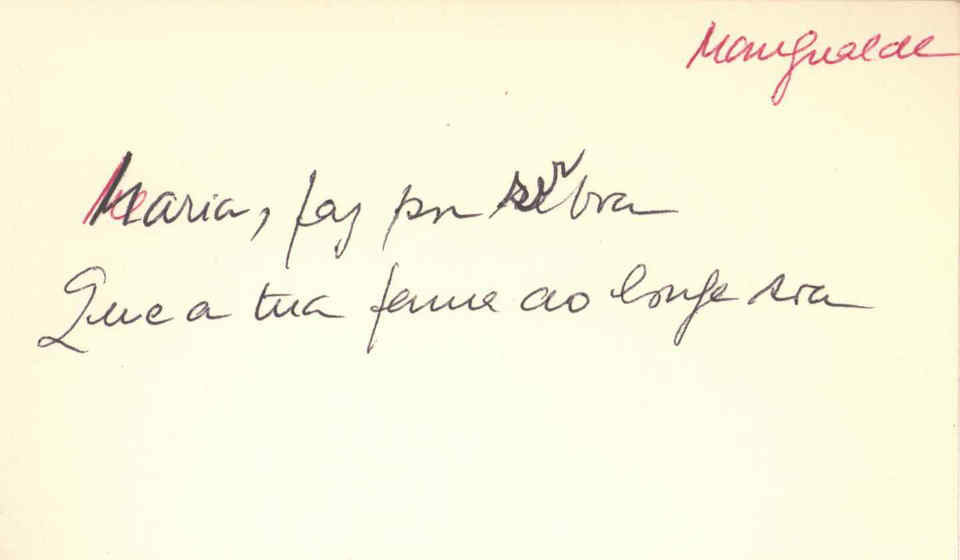 Mangualde
Maria, faz por ser boa
Que a tua fama ao longe soa